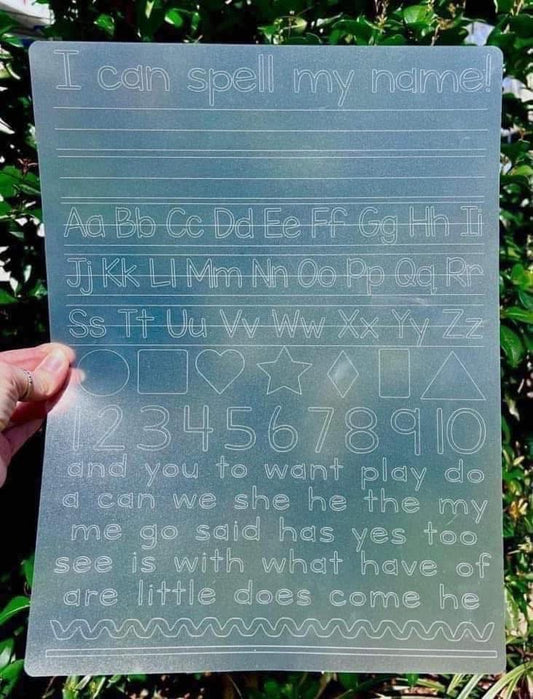 I can spell my name!
Aa Bb Cc Dd Ee Ff Gg Hh Ii
Jj Kk Ll Mm Nn Oo Pp Qq Rr
Ss Tt Uu Vv Ww Xx Yy Zz
1 2 3 4 5 6 7 8 9 10
and you to want play do
a can we she he the my
me go said has yes too
see is with what have of
are little does come he